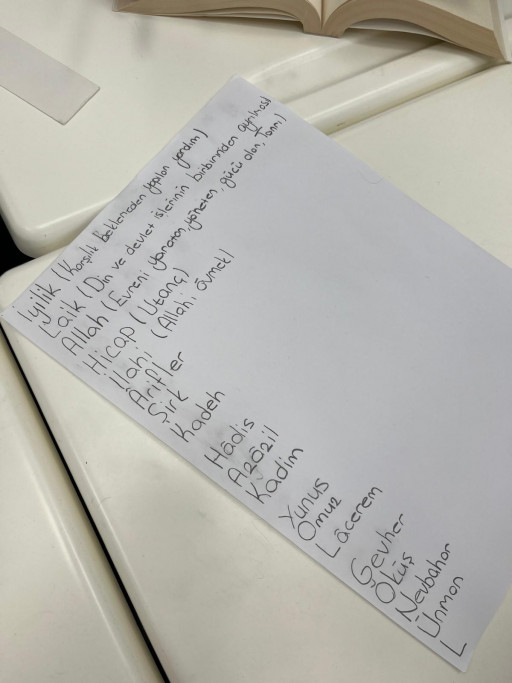 İyilik (Karşılık beklemeden yapılan yardım)
Laik (Din ve devlet işlerinin birbirinden ayrılması)
Allah (Evreni yaratan, yöneten, gücü olan, Tanrı)
Hicap (Utanç)
İlahi (Allahı övmek)
Arifler
Şirk
Kadeh
Hâdis
Azâzil
Kadim
Yunus
Omuz
Lâcerem
Gevher
Öküş
Nevbahar
Ünmon
L